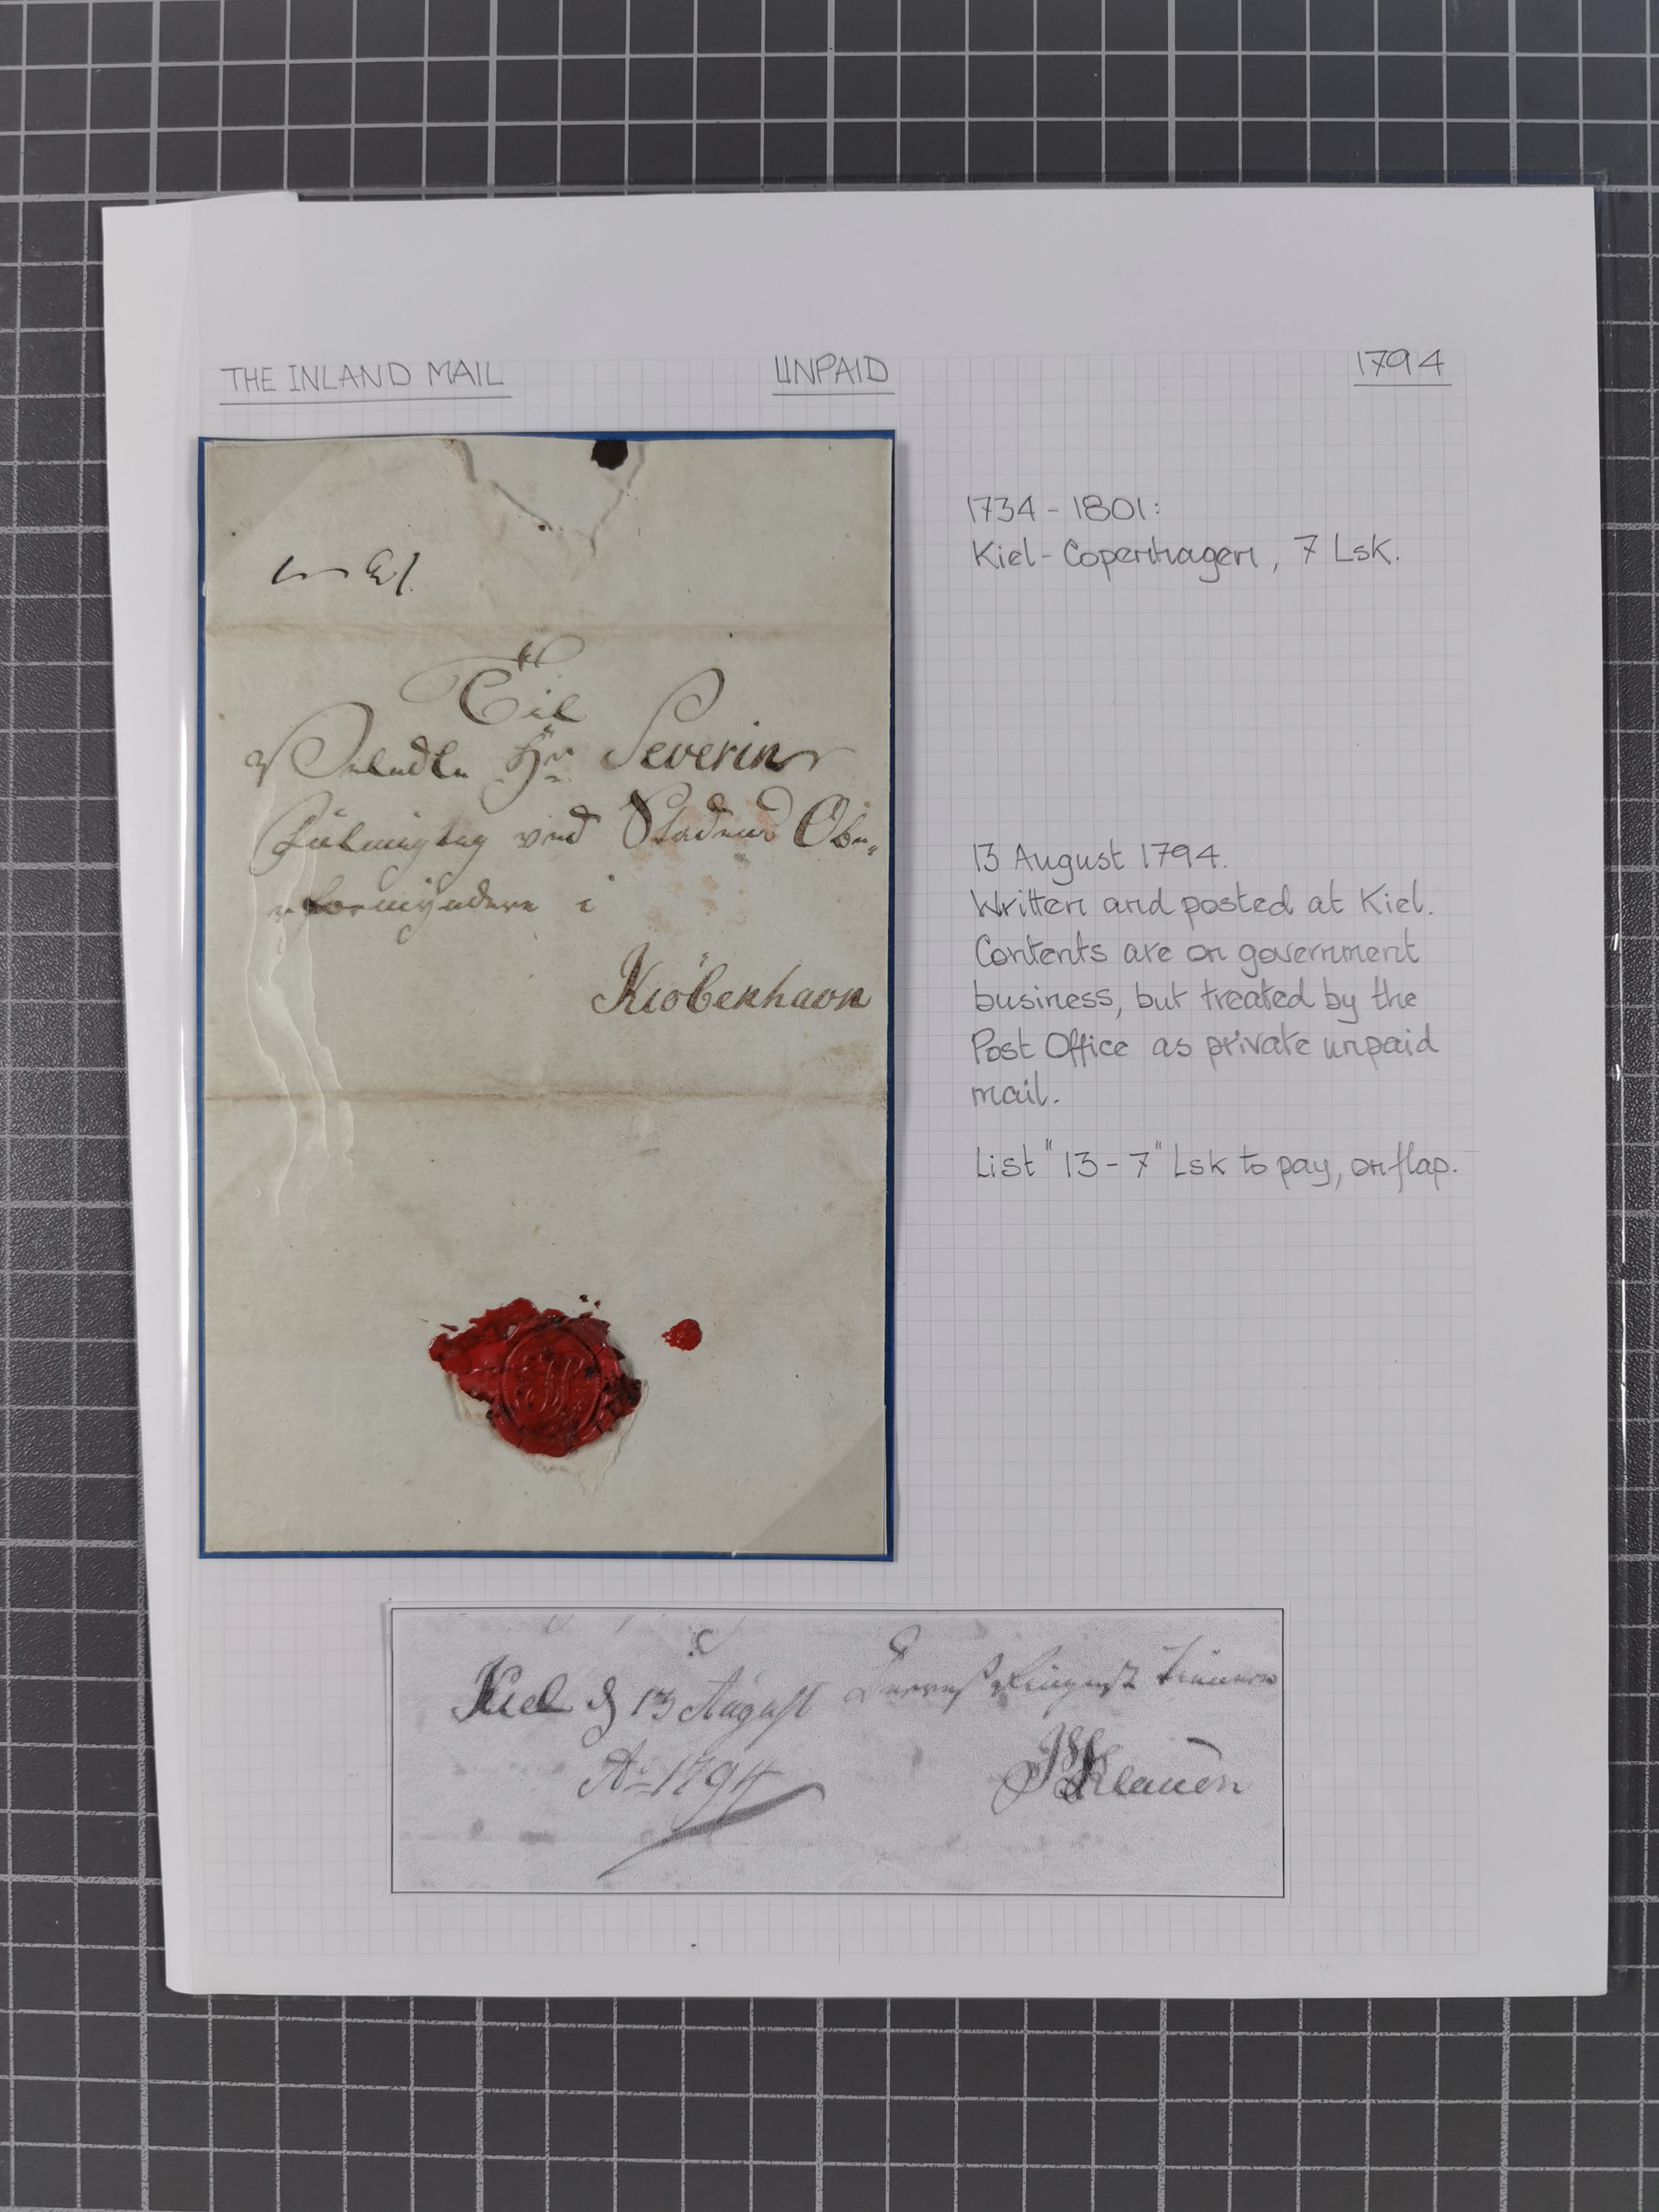 THE INLAND MAIL
UNPAID
1794
1734 - 1801:
Kiel - Copenhagen, 7 Lsk.
Til
Hr Severin
ved Stadens Over-
formyndere i
Kiöbenhavn
13 August 1794.
Written and posted at Kiel.
Contents are on government
business, but treated by the
Post Office as private unpaid
mail.
List "13 - 7" Lsk to pay, on flap.
Kiel d 13 August
Ao 1794
Klauen